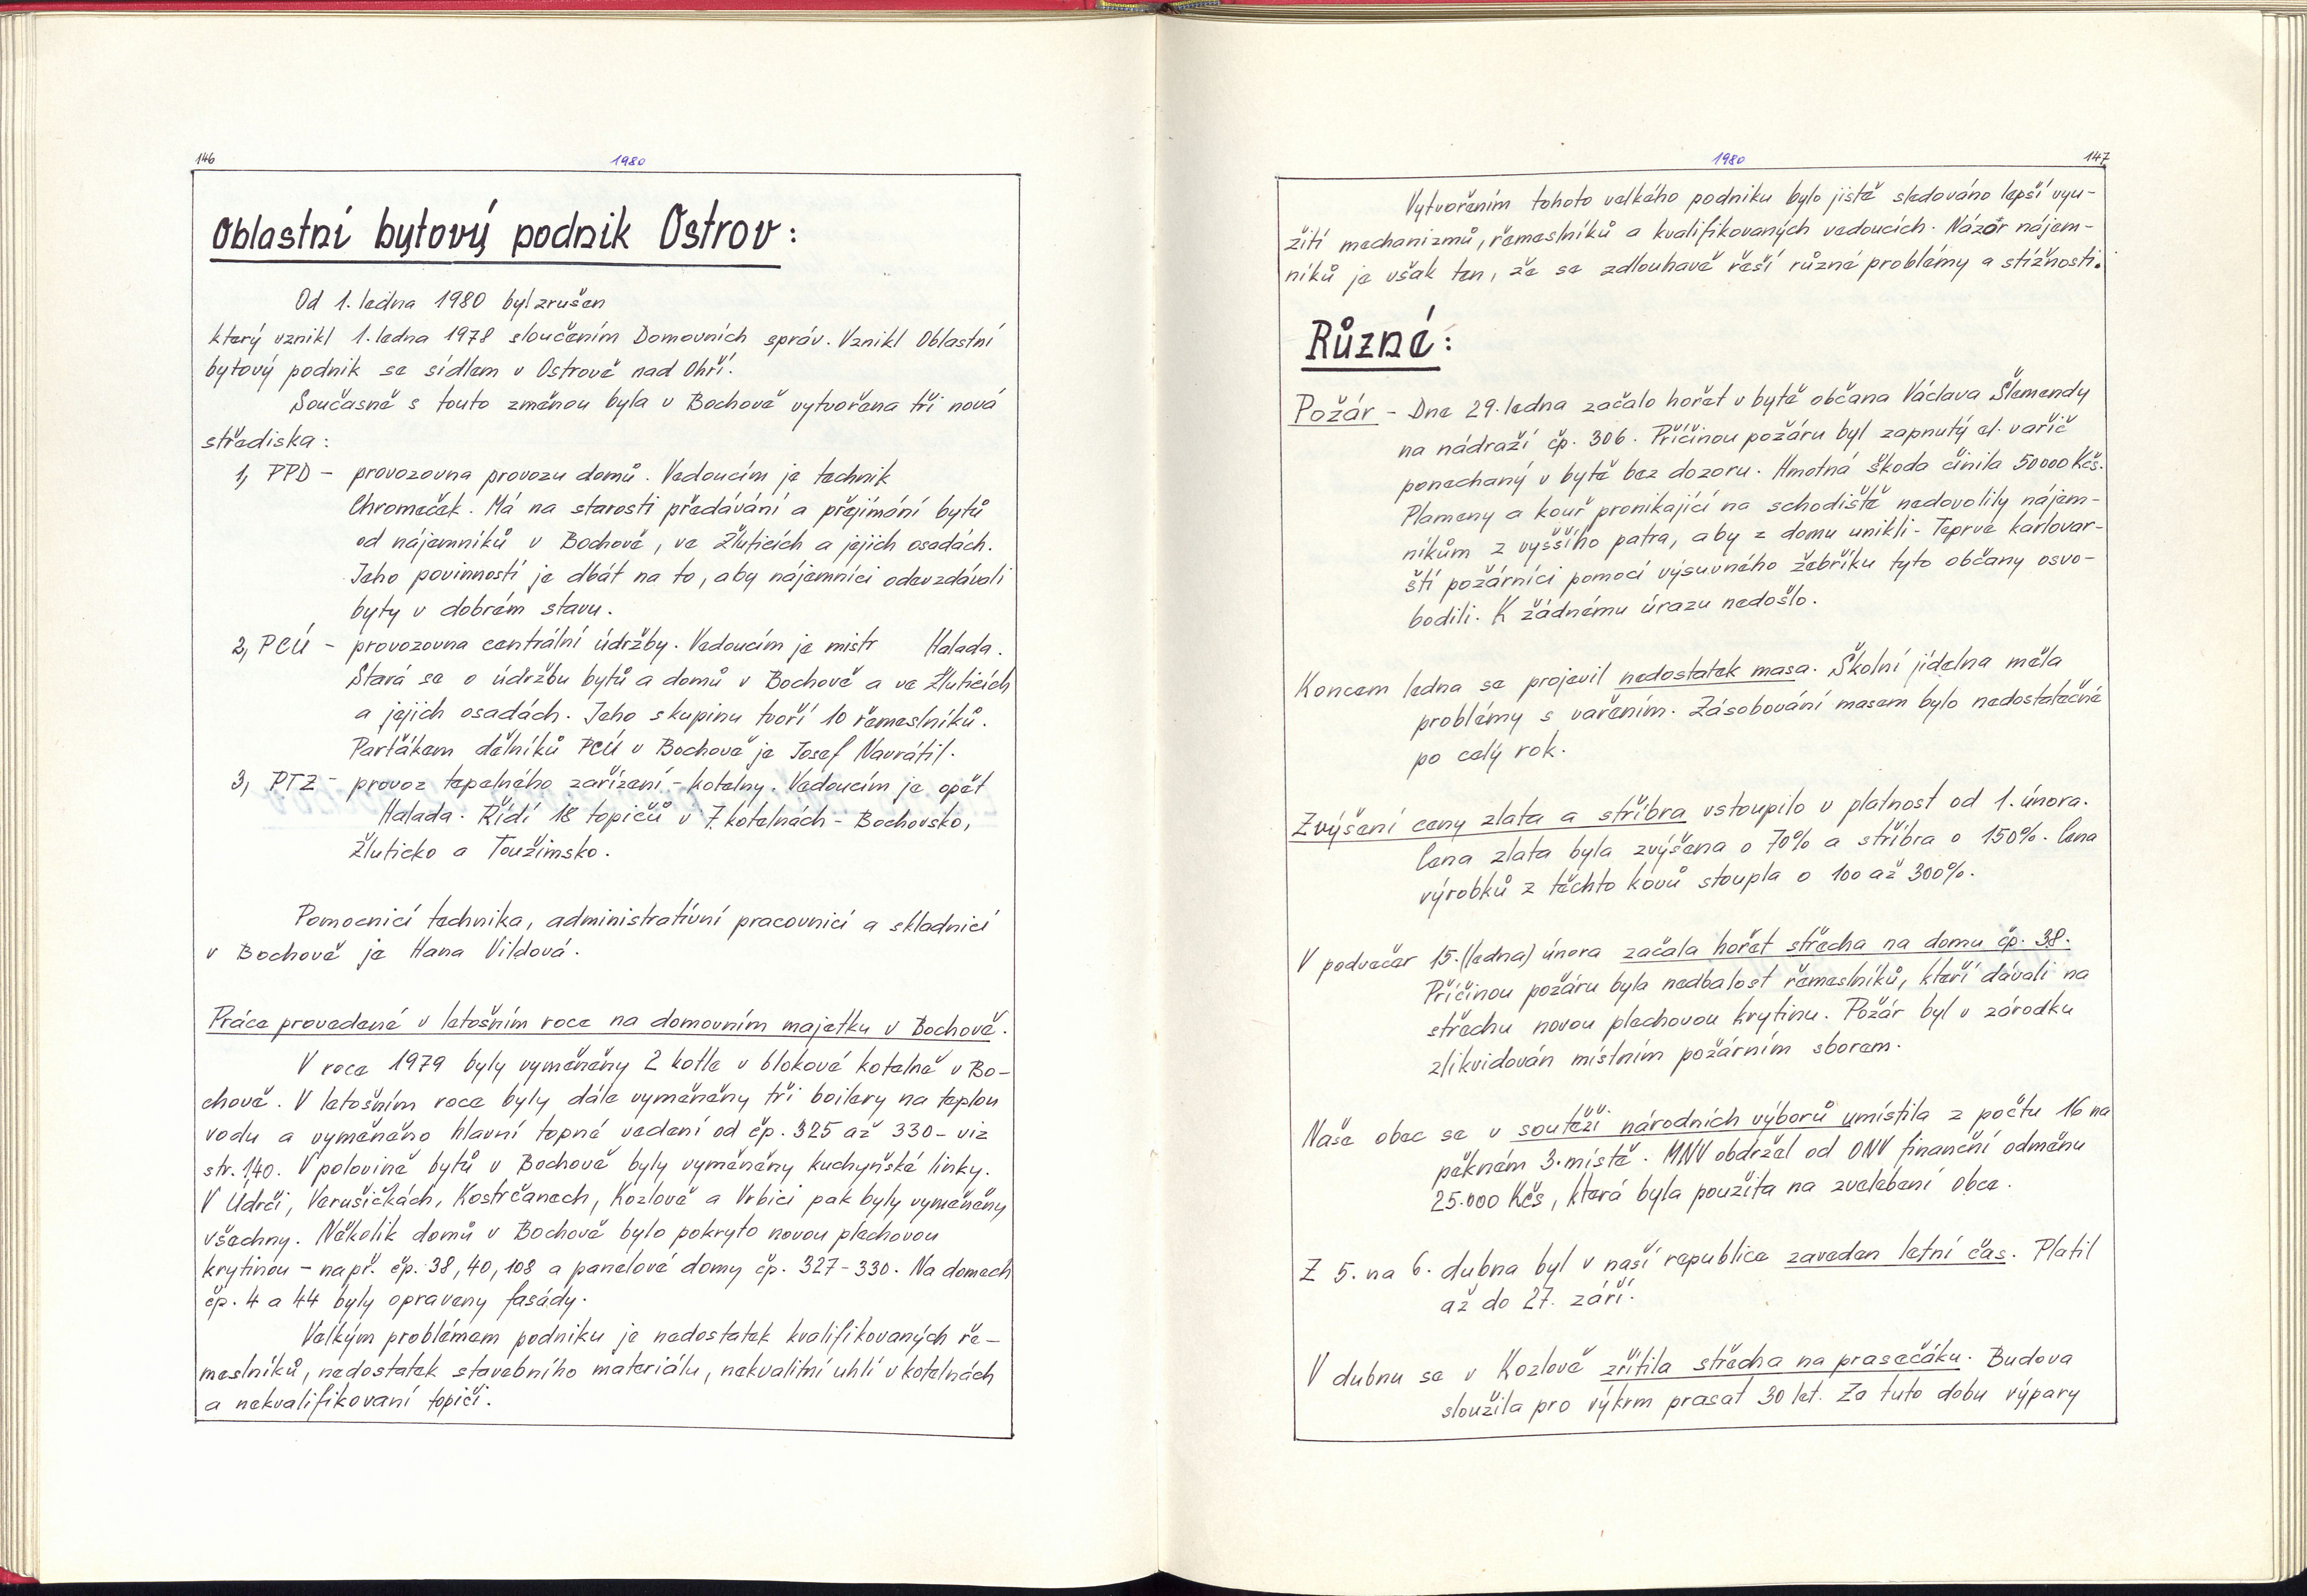 146
1980
Oblastní bytový podnik Ostrov:
Od 1. ledna 1980 byl zrušen
který vznikl 1. ledna 1978 sloučením Domovních správ. Vznikl Oblastní
bytový podnik se sídlem v Ostrově nad Ohří.
Současně s touto změnou byla v Bochově vytvořena tři nová
střediska:
1, PPD - provozovna provozu domů. Vedoucím je technik
Chromeček. Má na starosti předávání a přejímání bytů
od nájemníků v Bochově, ve Žluticích a jejich osadách.
Jeho povinností je dbát na to, aby nájemníci odevzdávali
byty v dobrém stavu.
2, PCÚ - provozovna centrální údržby. Vedoucím je mistr Halada.
Stará se o údržbu bytů a domů v Bochově a ve Žluticích
a jejich osadách. Jeho skupinu tvoří 10 řemeslníků.
Parťákem dělníků PCÚ v Bochově je Josef Navrátil.
3, PTZ - provoz tepelného zařízení - kotelny. Vedoucím je opět
Halada. Řídí 18 topičů v 7. kotelnách - Bochovsko,
Žluticko a Toužimsko.
Pomocnicí technika, administrativní pracovnicí a skladnicí
v Bochově je Hana Vildová.
Práce provedené v letošním roce na domovním majetku v Bochově.
V roce 1979 byly vyměněny 2 kotle v blokové kotelně v Bo-
chově. V letošním roce byly dále vyměněny tři boilery na teplou
vodu a vyměněno hlavní topné vedení od čp. 325 až 330 - viz
str. 140. V polovině bytů v Bochově byly vyměněny kuchyňské linky.
V Údrči, Verušičkách, Kostrčanech, Kozlově a Vrbici pak byly vyměněny
všechny. Několik domů v Bochově bylo pokryto novou plechovou
krytinou - např. čp. 38, 40, 108 a panelové domy čp. 327-330. Na domech
čp. 4 a 44 byly opraveny fasády.
Velkým problémem podniku je nedostatek kvalifikovaných ře-
meslníků, nedostatek stavebního materiálu, nekvalitní uhlí v kotelnách
a nekvalifikovaní topiči.
1980
147
Vytvořením tohoto velkého podniku bylo jistě sledováno lepší vyu-
žití mechanizmů, řemeslníků a kvalifikovaných vedoucích. Názor nájem-
níků je však ten, že se zdlouhavě řeší různé problémy a stížnosti.
Různé:
Požár - Dne 29. ledna začalo hořet v bytě občana Václava Šlemendy
na nádraží čp. 306. Příčinou požáru byl zapnutý el. vařič
ponechaný v bytě bez dozoru. Hmotná škoda činila 50000 Kčs.
Plameny a kouř pronikající na schodiště nedovolily nájem-
níkům z vyššího patra, aby z domu unikli. Teprve karlovar-
ští požárníci pomocí výsuvného žebříku tyto občany osvo-
bodili. K žádnému úrazu nedošlo.
Koncem ledna se projevil nedostatek masa. Školní jídelna měla
problémy s vařením. Zásobování masem bylo nedostatečné
po celý rok.
Zvýšení ceny zlata a stříbra vstoupilo v platnost od 1. února.
Cena zlata byla zvýšena o 70% a stříbra o 150%. Cena
výrobků z těchto kovů stoupla o 100 až 300%.
V podvečer 15. (ledna) února začala hořet střecha na domu čp. 38.
Příčinou požáru byla nedbalost řemeslníků, kteří dávali na
střechu novou plechovou krytinu. Požár byl v zárodku
zlikvidován místním požárním sborem.
Naše obec se v soutěži národních výborů umístila z počtu 16 na
pěkném 3. místě. MNV obdržel od ONV finanční odměnu
25.000 Kčs, která byla použita na zvelebení obce.
Z 5. na 6. dubna byl v naší republice zaveden letní čas. Platil
až do 27. září.
V dubnu se v Kozlově zřítila střecha na prasečáku. Budova
sloužila pro výkrm prasat 30 let. Za tuto dobu výpary